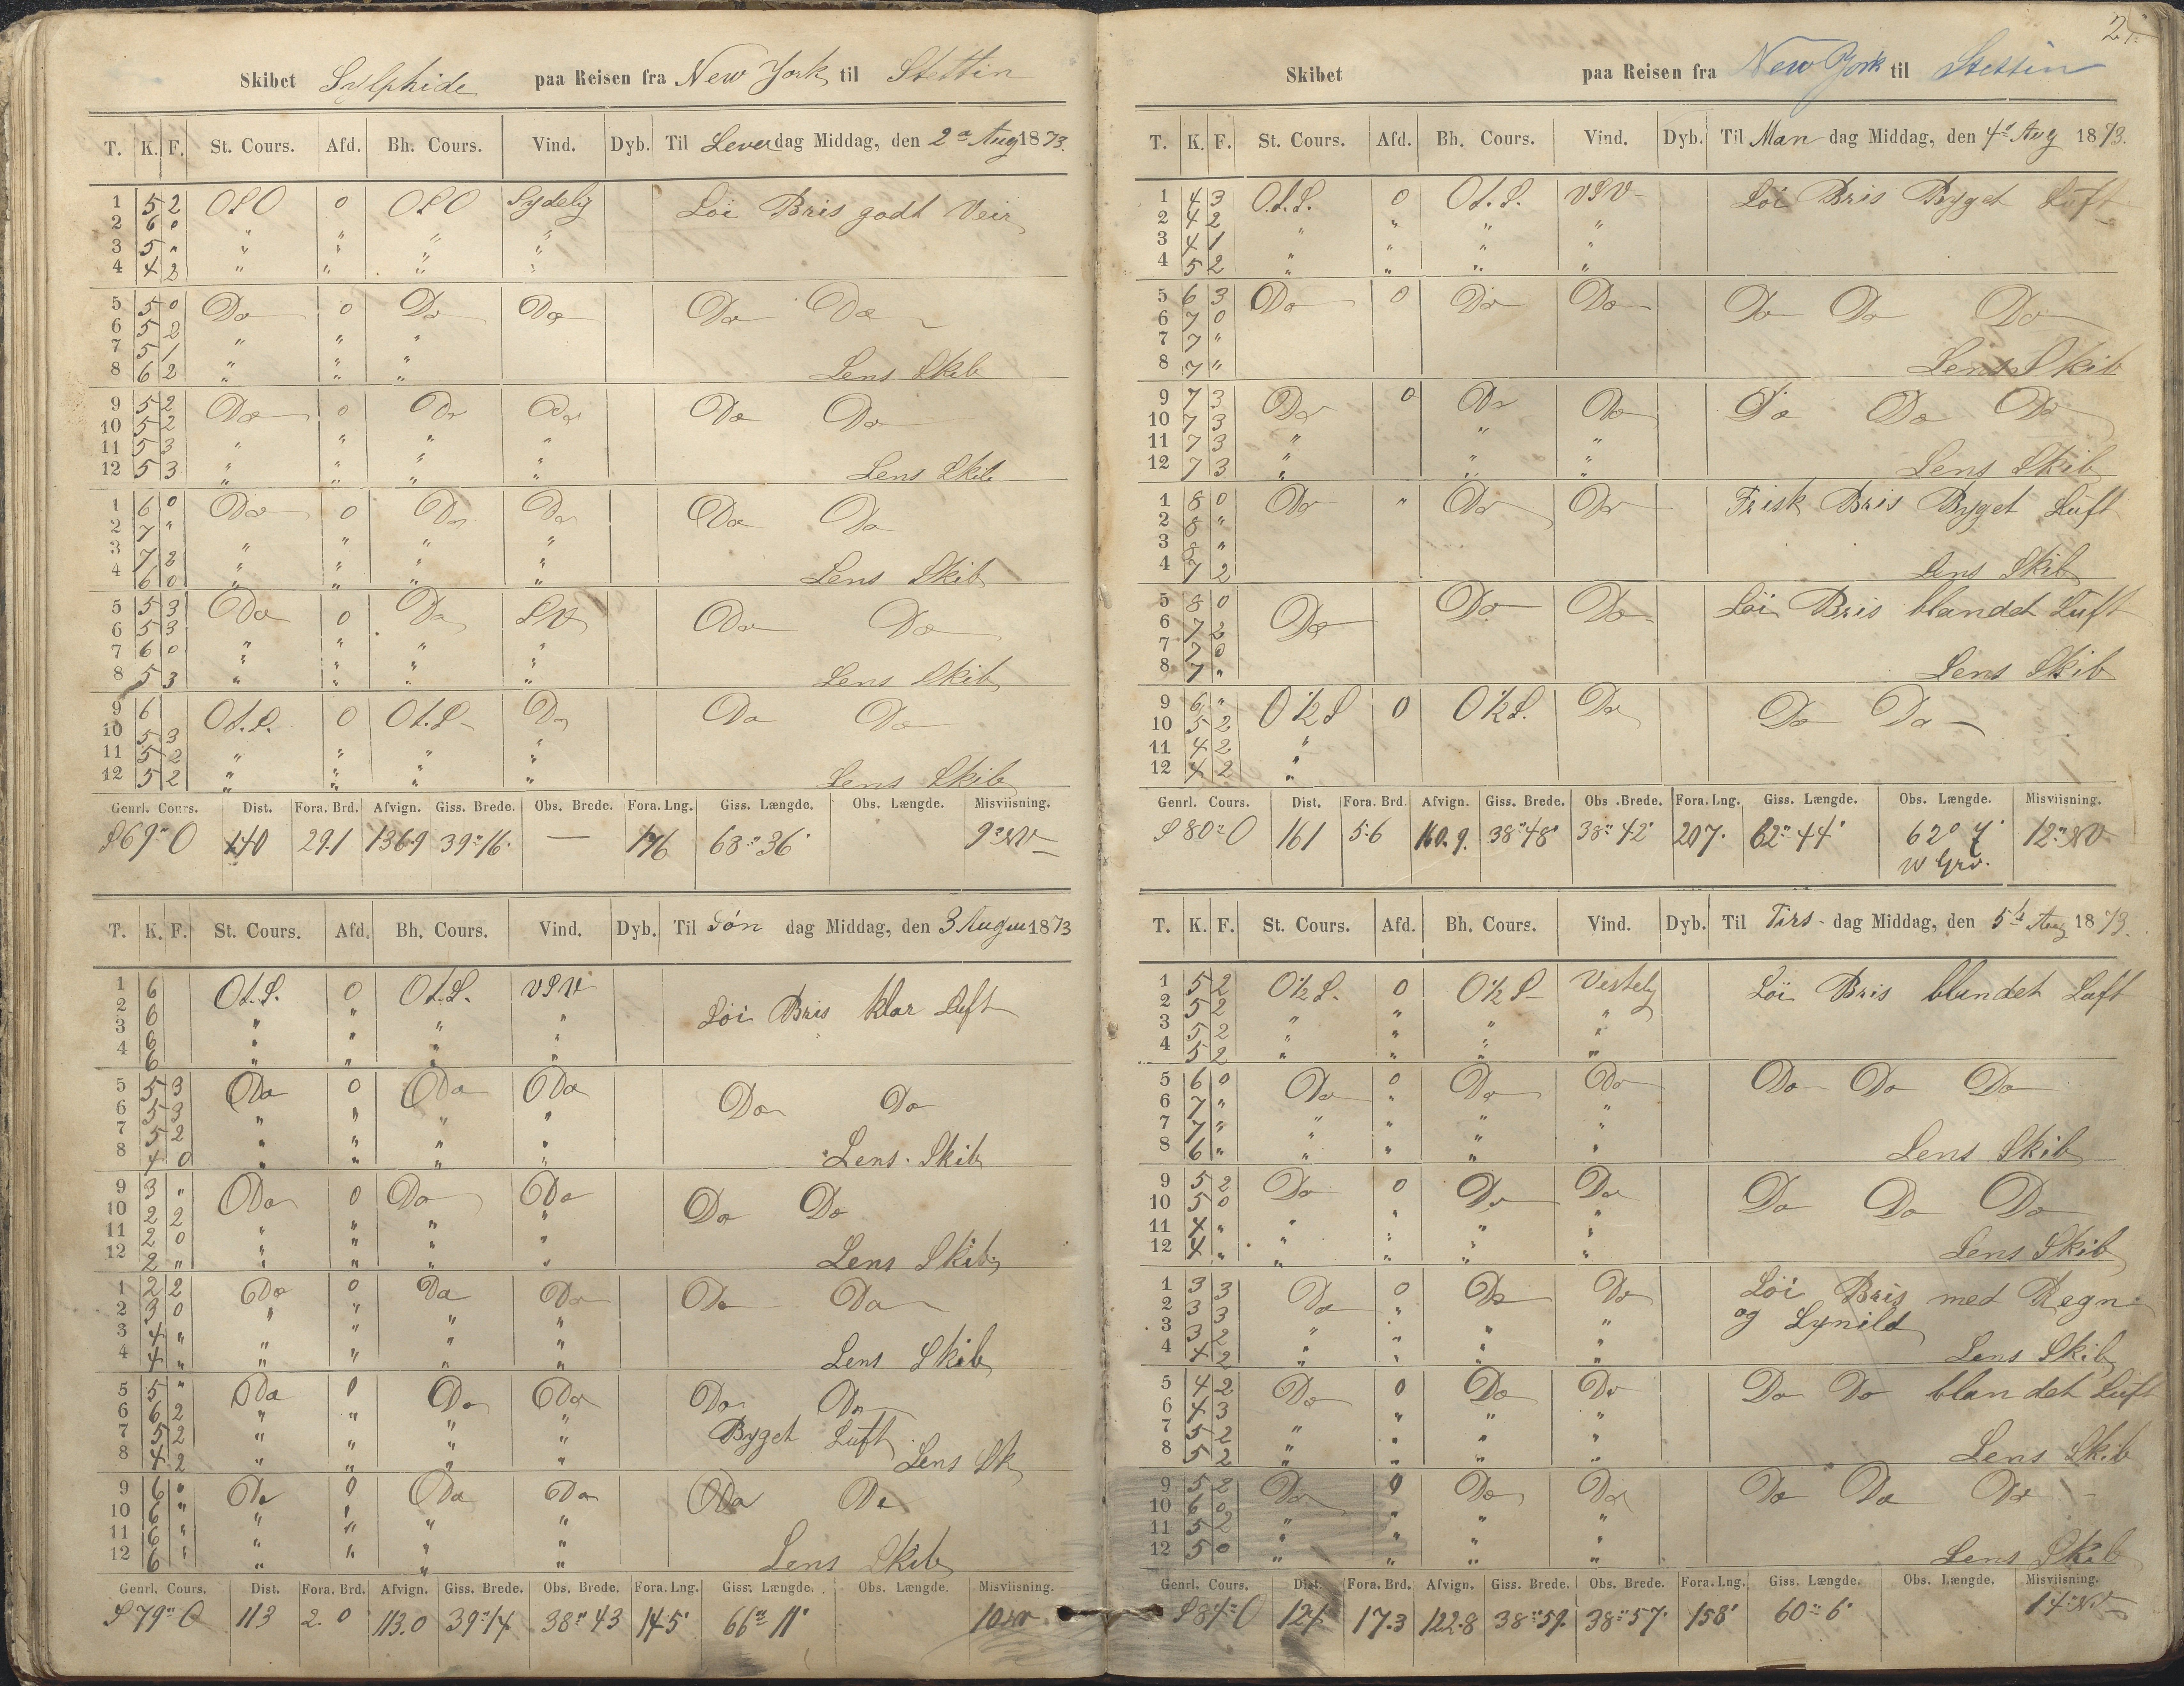 Skibet Sylphide paa Reisen fra New York til Stettin
T. K. F. St. Cours. Afd. Bh. Cours. Vind. Dyb. Til Löverdag Middag, den 2a Aug 1873.
1 5 2 OSO 0 OSO Sydelig Löi Bris godt Veir
2 6 0 " " " "
3 5 " " " " "
4 4 2 " " " "
5 5 0 Do 0 Do Do Do Do
6 5 2
7 5 1 " " "
8 6 2 " " " Lens Skib
9 5 2 Do 0 Do Do Do Do
10 5 2
11 5 3 " " " "
12 5 3 " " " " Lens Skib
1 6 0 Do 0 Do Do Do Do
2 7 "
3 7 2 " " " "
4 6 0 " " " " Lens Skib
5 5 3 Do 0 Do SV Do Do
6 5 3
7 6 0 " " " "
8 5 3 " " " " Lens Skib
9 6 Ot.S. 0 Ot.S. Do Do Do
10 5 3
11 5 2 " " " "
12 5 2 " " " " Lens Skib
Genrl. Cours. Dist. Fora. Brd. Afvign. Giss. Brede. Obs. Brede. Fora. Lng. Giss. Længde. Obs. Længde. Misviisning.
S 69° O 140 29.1 136.9 39°16' — 176 68° 36' 9° NV
T. K. F. St. Cours. Afd. Bh. Cours. Vind. Dyb. Til Søn dag Middag, den 3 August 1873
1 6 Ot.S. 0 Ot.S. VSV Löi Bris klar Luft
2 6 " " " "
3 6 " " " "
4 6 " " " "
5 5 3 Do 0 Do Do Do Do
6 5 3 " " " "
7 5 2 " " " "
8 4 0 " " " " Lens Skib
9 3 " Do 0 Do Do Do Do
10 2 2 " " " "
11 2 0 " " " "
12 2 " " " " " Lens Skib
1 2 2 Do 0 Do Do Do Do
2 3 0 " " " "
3 4 " " " " "
4 4 " " " " " Lens Skib
5 5 " Do 0 Do Do Do Do
6 6 2 " " " " Byget Luft
7 5 2 " " " "
8 4 2 " " " " Lens Sk
9 6 0 Do 0 Do Do Do Do
10 6 " " " " "
11 6 " " " " "
12 6 " " " " " Lens Skib
Genrl. Cours. Dist. Fora. Brd. Afvign. Giss. Brede. Obs. Brede. Fora. Lng. Giss. Længde. Obs. Længde. Misviisning.
S 79° O 113 2. 0 113.0 39°14 38° 43 145' 66° 11' 10 NV
2
Skibet paa Reisen fra New York til Stettin
T. K. F. St. Cours. Afd. Bh. Cours. Vind. Dyb. Til Man dag Middag, den 4de Aug 1873.
1 4 3 O.t.S. 0 Ot.S. VSV Löi Bris Byget Luft
2 4 2 " " " "
3 4 1 " " " "
4 5 2 " " " "
5 6 3 Do 0 Do Do Do Do Do
6 7 0
7 7 "
8 7 " Lens Skib
9 7 3 Do 0 Do Do Do Do Do
10 7 3
11 7 3 " " "
12 7 3 " " " Lens Skib
1 8 0 Do " Do Do Frisk Bris Byget Luft
2 8 "
3 8 "
4 7 2 Lens Skib
5 8 0 Do Do Do Löi Bris blandet Luft
6 7 2
7 7 0
8 7 " Lens Skib
9 6 " O ½ S 0 O ½ S. Do Do Do
10 5 2
11 4 2 "
12 4 2 "
Genrl. Cours. Dist. Fora. Brd. Afvign. Giss. Brede. Obs. Brede. Fora. Lng. Giss. Længde. Obs. Længde. Misviisning.
S 80° O 161 5.6 160.9. 38°48' 38° 42' 207. 62° 44' 62° 7' 12° NV
W Grv.
T. K. F. St. Cours. Afd. Bh. Cours. Vind. Dyb. Til Tirs dag Middag, den 5te Aug 1873.
1 5 2 O ½ S. 0 O ½ S Vestelig Löi Bris blandet Luft
2 5 2 " " " "
3 5 2 " " " "
4 5 2 " " " "
5 6 0 Do 0 Do Do Do Do Do
6 7 " " " "
7 7 " " " " "
8 6 " " " " " Lens Skib
9 5 2 Do 0 Do Do Do Do Do
10 5 0 " "
11 4 " " " " "
12 4 " " " " " Lens Skib
1 3 3 Do 0 Do Do Löi Bris med Regn
2 3 3 " og Lynild
3 3 2 " " " "
4 4 2 " " " " Lens Skib
5 4 2 Do 0 Do Do Do Do blandet Luft
6 4 3 " " "
7 5 2 " " " "
8 5 2 " " " " Lens Skib
9 5 2 Do 0 Do Do Do Do Do
10 6 0 " " " "
11 5 2 " " " "
12 5 0 " " " " Lens Skib
Genrl. Cours. Dist. Fora. Brd. Afvign. Giss. Brede. Obs. Brede. Fora. Lng. Giss. Længde. Obs. Længde. Misviisning.
S 84° O 124 17.3 122.8 38°59. 38°57. 158' 60° 6' 14° NV